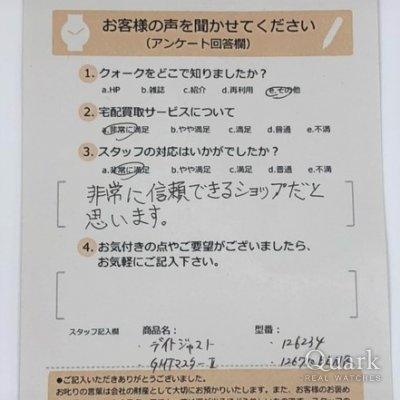 お客様の声を聞かせてください
(アンケート回答欄)
1. クォークをどこで知りましたか?
a.HP b.雑誌 c.紹介 d.再利用 e.その他
2. 宅配買取サービスについて
a.非常に満足 b.やや満足 c.満足 d.普通 e.不満
3. スタッフの対応はいかがでしたか?
a.非常に満足 b.やや満足 c.満足 d.普通 e.不満
非常に信頼できるショップだと
思います。
4. お気付きの点やご要望がございましたら、
お気軽にご記入下さい。
スタッフ記入欄 商品名: 型番:
・デイトジャスト ・126234
・GMTマスターⅡ
Quark
REAL WATCHES
●ご記入いただきありがとうございました。
お叱りの言葉は会社の財産として大切にお預かりいたします。また、お客様のお褒め